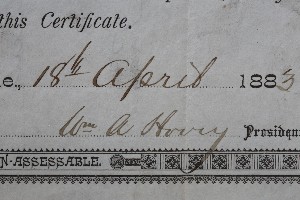 this Certificate.
e., 18th April 1883
Wm A Howry Presiden
N-ASSESSABLE.